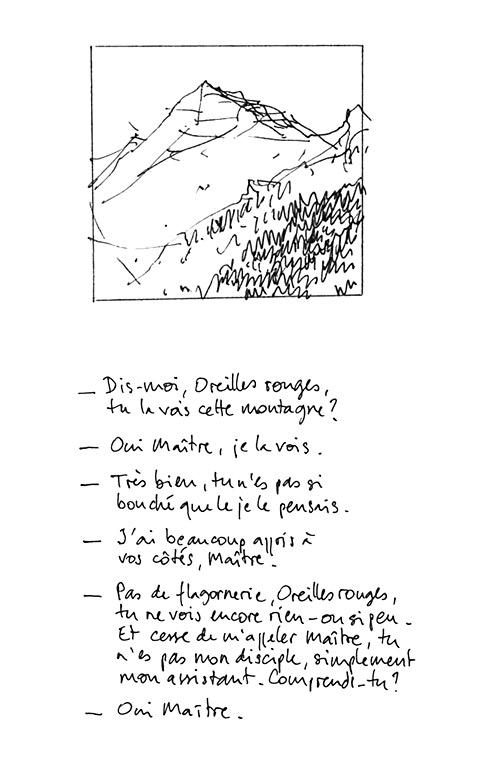 — Dis-moi, Oreilles rouges,
tu la vois cette montagne?
— Oui Maître, je la vois.
— Très bien, tu n'es pas si
bouché que le je le pensais.
— J'ai beaucoup appris à
vos côtés, Maître.
— Pas de flagornerie, Oreilles rouges,
tu ne vois encore rien - ou si peu.
Et cesse de m'appeler Maître, tu
n'es pas mon disciple, simplement
mon assistant. Comprends-tu?
— Oui Maître.